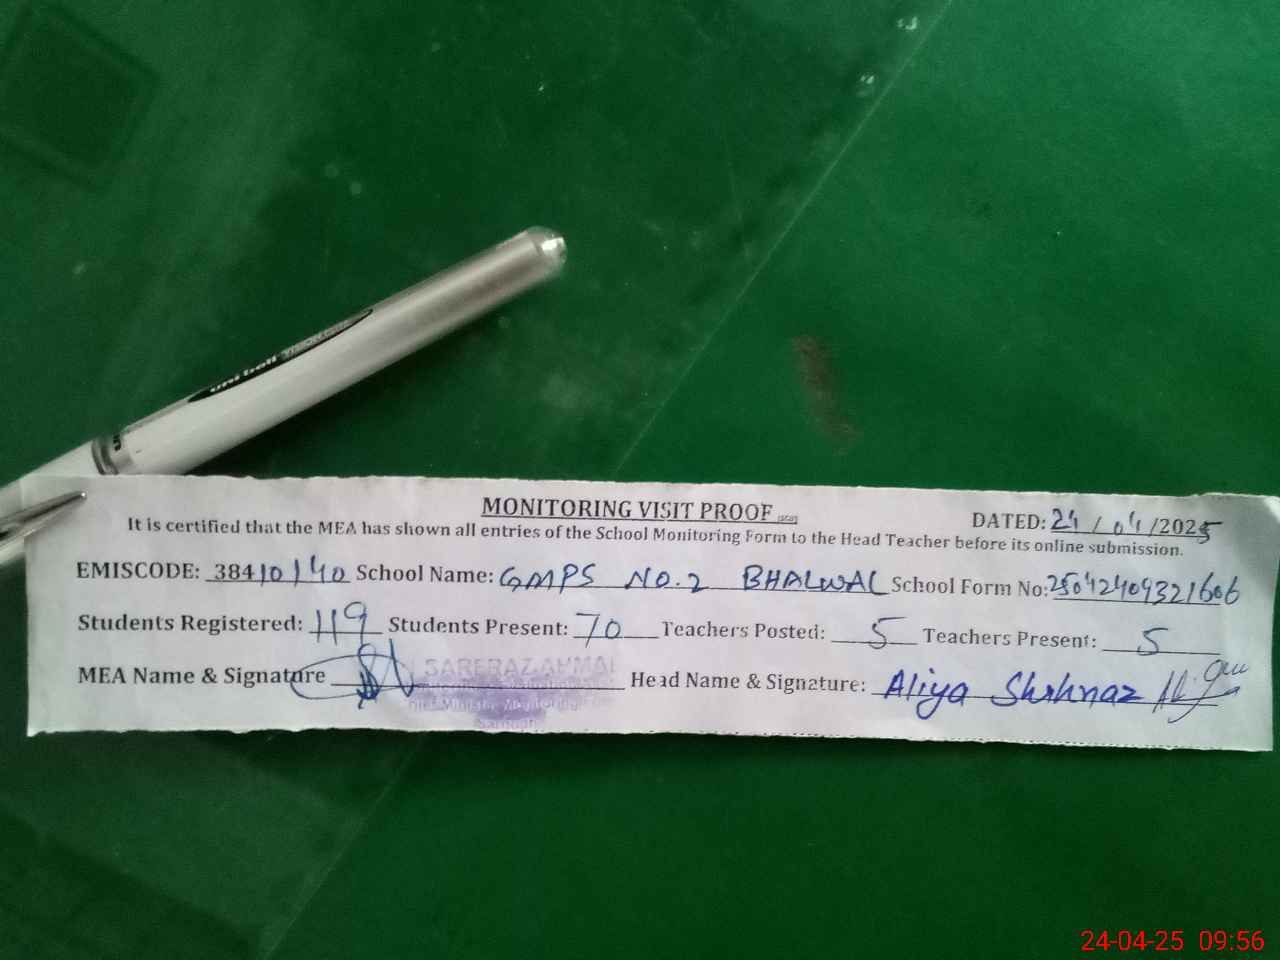 uni-ball
MONITORING VISIT PROOF
DATED: 24/04/2025
It is certified that the MEA has shown all entries of the School Monitoring Form to the Head Teacher before its online submission.
EMISCODE: 38410140 School Name: GMPS NO.2 BHALWAL School Form No: 25042409321606
Students Registered: 119 Students Present: 70 Teachers Posted: 5 Teachers Present: 5
MEA Name & Signature Head Name & Signature: Aliya Shehnaz
24-04-25 09:56